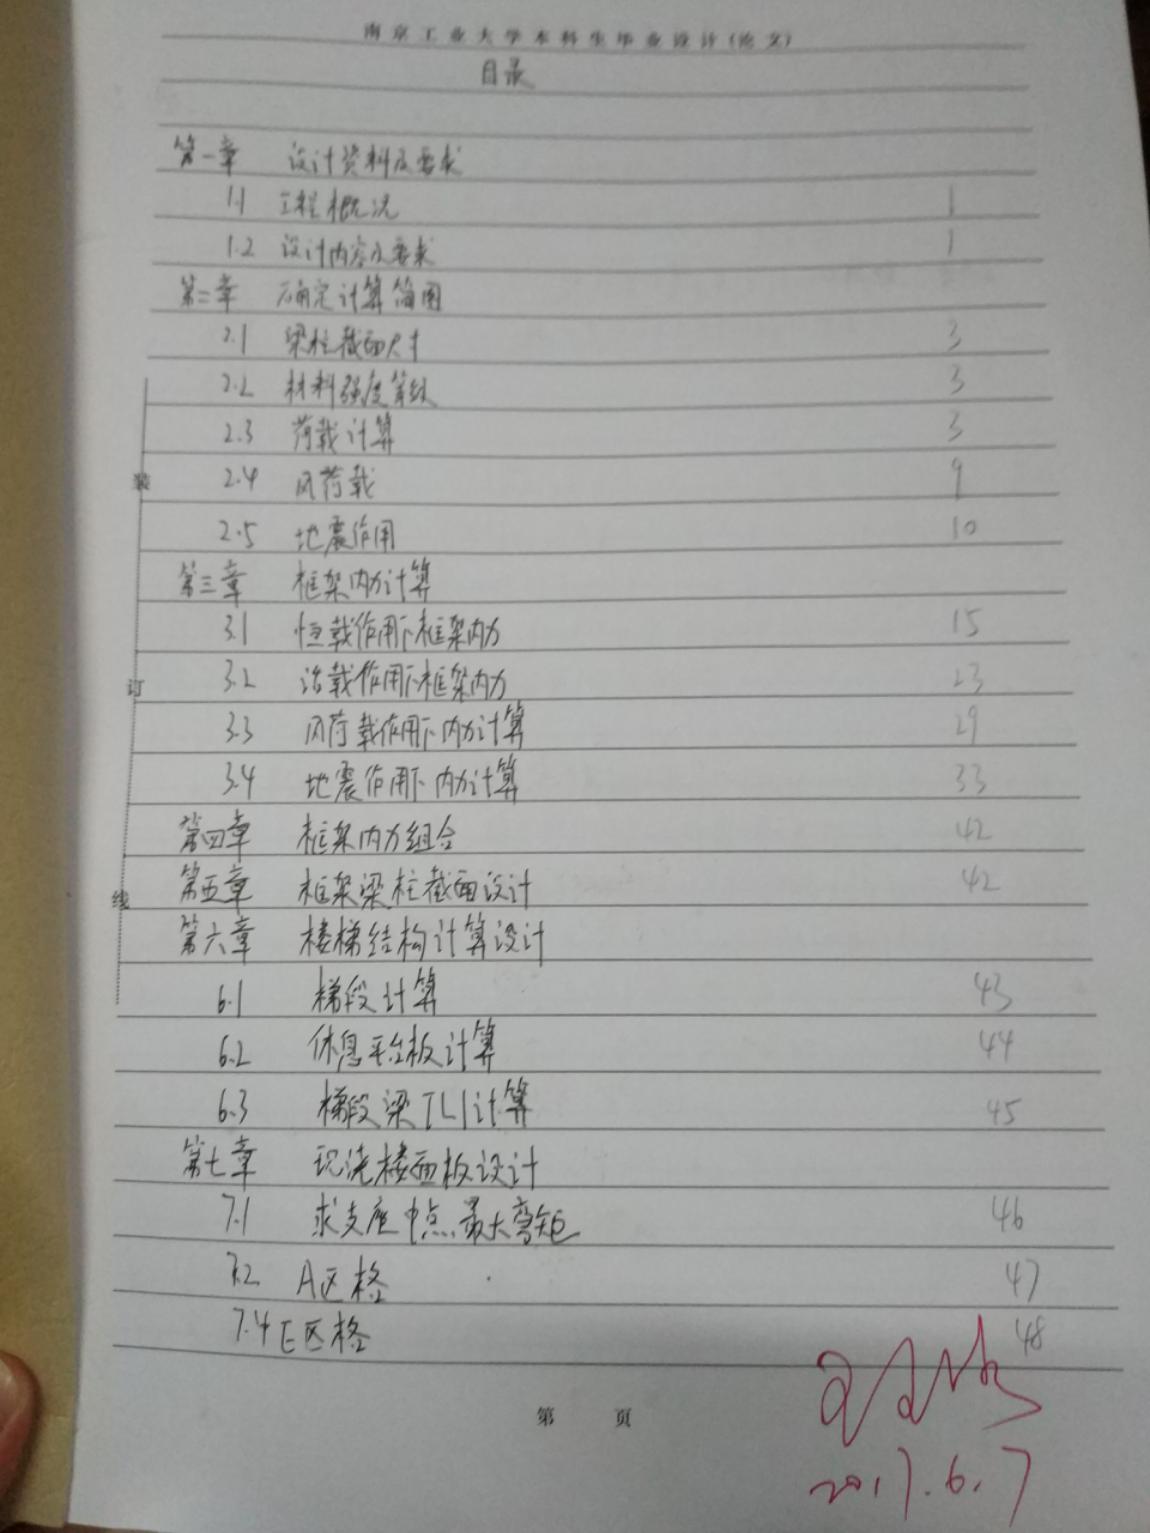 南京工业大学本科生毕业设计(论文)
目录
第一章 设计资料及要求
1.1 工程概况 1
1.2 设计内容及要求 1
第二章 确定计算简图
2.1 梁柱截面尺寸 3
2.2 材料强度等级 3
2.3 荷载计算 3
2.4 风荷载 9
2.5 地震作用 10
第三章 框架内力计算
3.1 恒载作用下框架内力 15
3.2 活载作用下框架内力 23
3.3 风荷载作用下内力计算 29
3.4 地震作用下内力计算 33
第四章 框架内力组合 42
第五章 框架梁柱截面设计 42
第六章 楼梯结构计算设计
6.1 梯段计算 43
6.2 休息平台板计算 44
6.3 梯段梁TL1计算 45
第七章 现浇楼面板设计
7.1 求支座中点最大弯矩 46
7.2 A区格 47
7.4 E区格 48
装
订
线
第 页
2017.6.7